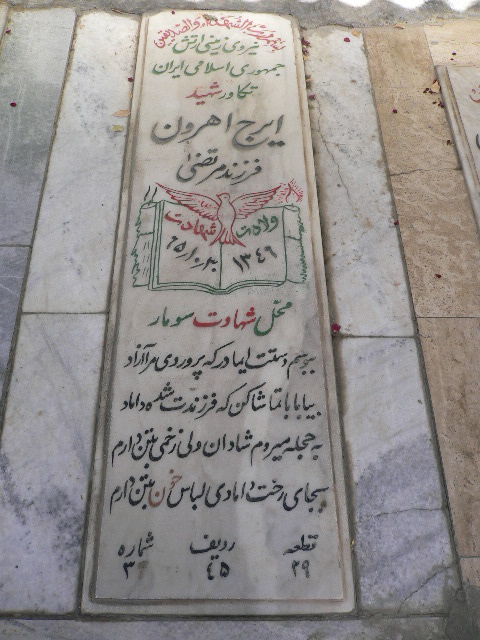 نیروی زمینی ارتش
جمهوری اسلامی ایران
تکاور شهید
ایرج اهرون
فرزند مرتضیٰ
ولادت شهادت
۱۳۴۶
محل شهادت سومار
ببوسم دستت ایمادر که پروردی مرا آزاد
بیا بابا تماشا کن که فرزندت شده داماد
به حجله میروم شادان ولی زخمی بتن دارم
بجای رخت دامادی لباس خون بتن دارم
قطعه ردیف شماره
۲۹ ۴۵ ۳